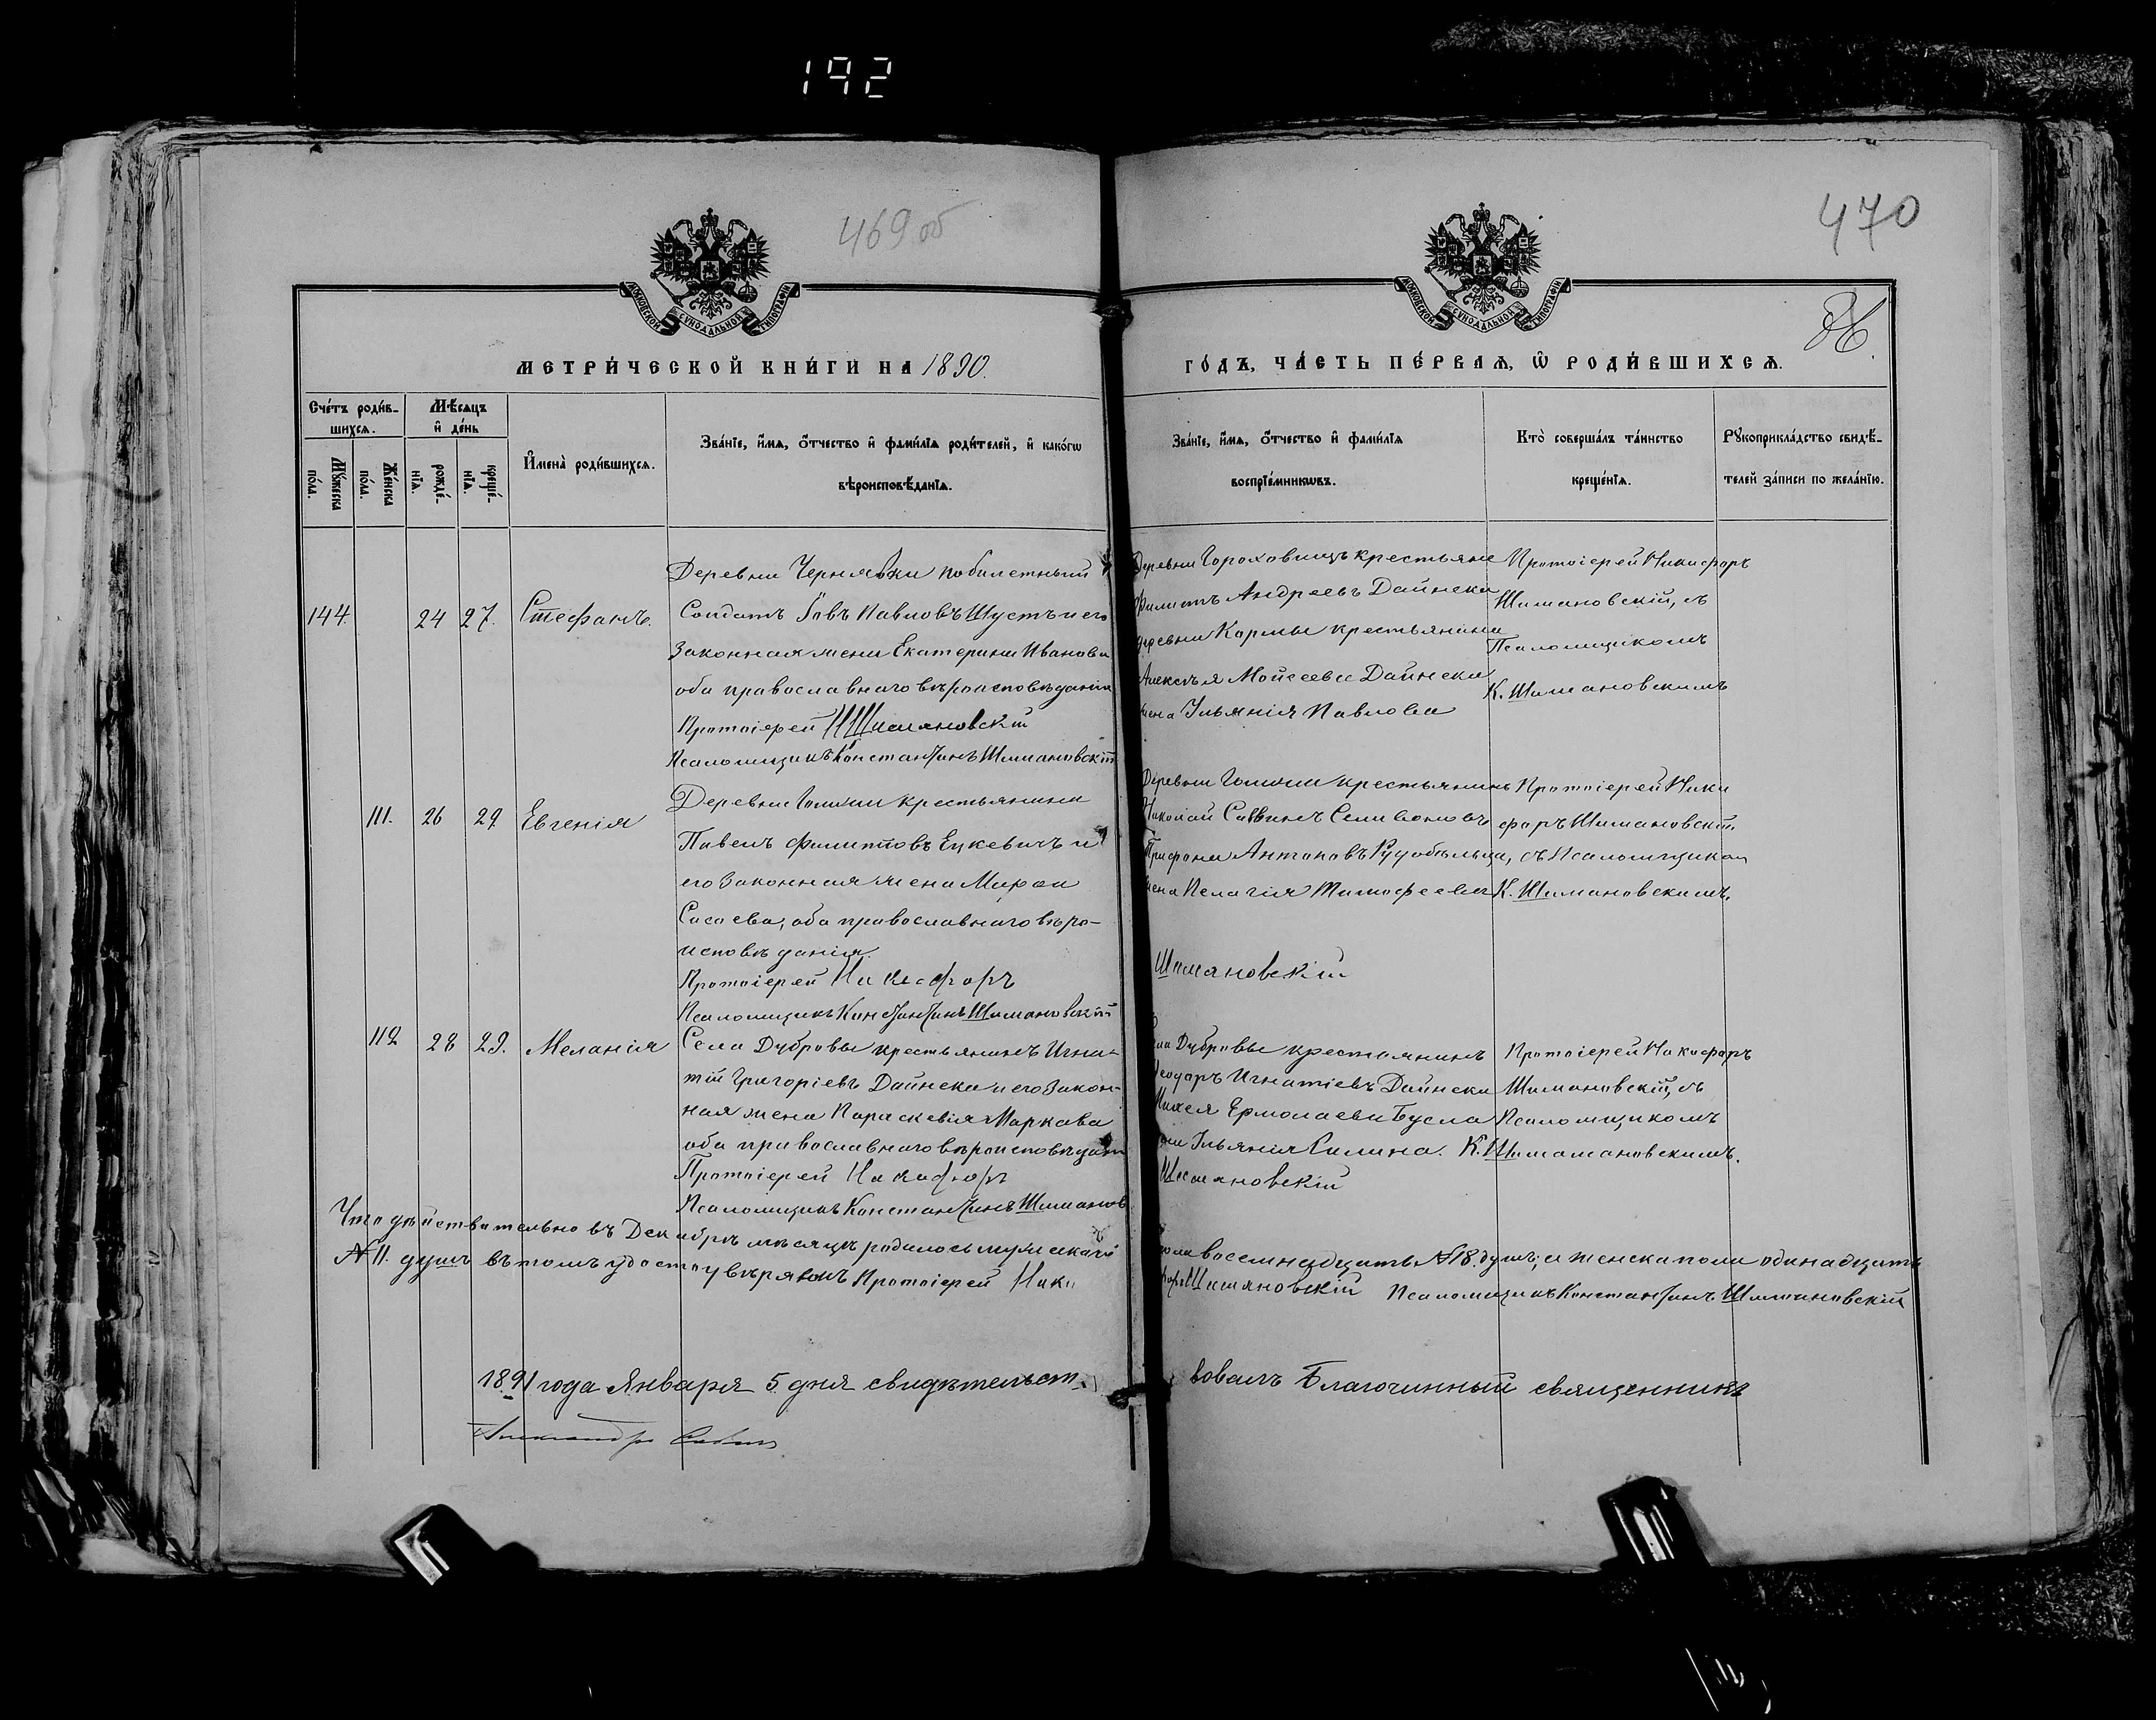 192
469 об
470
МОСКОВСКОЙ СѴНОДАЛЬНОЙ ТИПОГРАФІИ
МОСКОВСКОЙ СѴНОДАЛЬНОЙ ТИПОГРАФІИ
МЕТРИ́ЧЕСКОЙ КНИ́ГИ НА 1890.
ГО́ДЪ, ЧА́СТЬ ПЕ́РВАѦ, Ѡ҆ РОДИ́ВШИХСѦ.
Сче́тъ роди́в-
шихсѧ.
Мѣ́сѧцъ
и҆ де́нь
Мꙋ́жеска
по́ла.
Же́нска
по́ла.
рожде́-
нїѧ.
креще́-
нїѧ.
И҆мена̀ роди́вшихсѧ.
Зва́нїе, и҆́мѧ, ѻ҆́тчество и҆ фами́лїѧ роди́телей, и҆ како́гѡ
вѣроисповѣ́данїѧ.
Зва́нїе, и҆́мѧ, ѻ҆́тчество и҆ фами́лїѧ
воспрїе́мникѡвъ.
Кто̀ соверша́лъ та́инство
креще́нїѧ.
Рꙋкоприкла́дство свидѣ́-
телей за́писи по жела́нїю.
144. 24 27. Стефанъ.
Деревни Чернявки побилетный
Солдатъ Іовъ Павловъ Шустъ и его
Законная жена Екатерина Иванова
оба православнаго вѣроисповѣданія
Протоіерей Н Шимановскій
Псаломщикъ Константинъ Шимановскій
Деревни Гороховищъ крестьянин
Филиппъ Андреевъ Дайнека
деревни Кармы крестьянина
Алексѣя Мойсеева Дайнеки
жена Ульянія Павлова
Протоіерей Никифоръ
Шимановскій, съ
Псаломщикомъ
К. Шимановскимъ
111. 26 29 Евгенія
Деревни крестьянинъ
Павелъ Филипповъ Ецкевичъ и
его законная жена Марѳа
Сасаева, оба православнаго вѣро-
исповѣданія.
Протоіерей Никифоръ
Псаломщикъ Константинъ Шимановскій
Деревни крестьянинъ
Николай Саввинъ Селивоновъ
Трифона Антонова Рудобѣльца,
жена Пелагія Тимофеева
Шимановскій
Протоіерей Ники
форъ Шимановскій,
съ Псаломщиком
К. Шимановскимъ.
112 28 29. Меланія
Села Дубровы крестьянинъ Игна-
тій Григоріевъ Дайнека и его закон-
ная жена Параскевія Маркова
оба православнаго вѣроисповѣданія
Протоіерей Никифоръ
Псаломщикъ Константинъ Шиманов
Села Дубровы крестьянинъ
Ѳеодоръ Игнатіевъ Дайнека
Ермолаева Бусла
жена Ульянія
Шимановскій
Протоіерей Никифоръ
Шимановскій, съ
Псаломщикомъ
К. Шимамановскимъ.
Что дѣйствительно въ Декабрѣ мѣсяцѣ родилось мужескаго пола восемнадцать № 18. душъ, а женска пола одинадцать
№ 11. душъ въ томъ удостоувѣряемъ Протоіерей Никифоръ Шимановскій Псаломщикъ Константинъ Шимановскій
1891 года Января 5 дня свидѣтельствовалъ Благочинный священникъ
Александръ